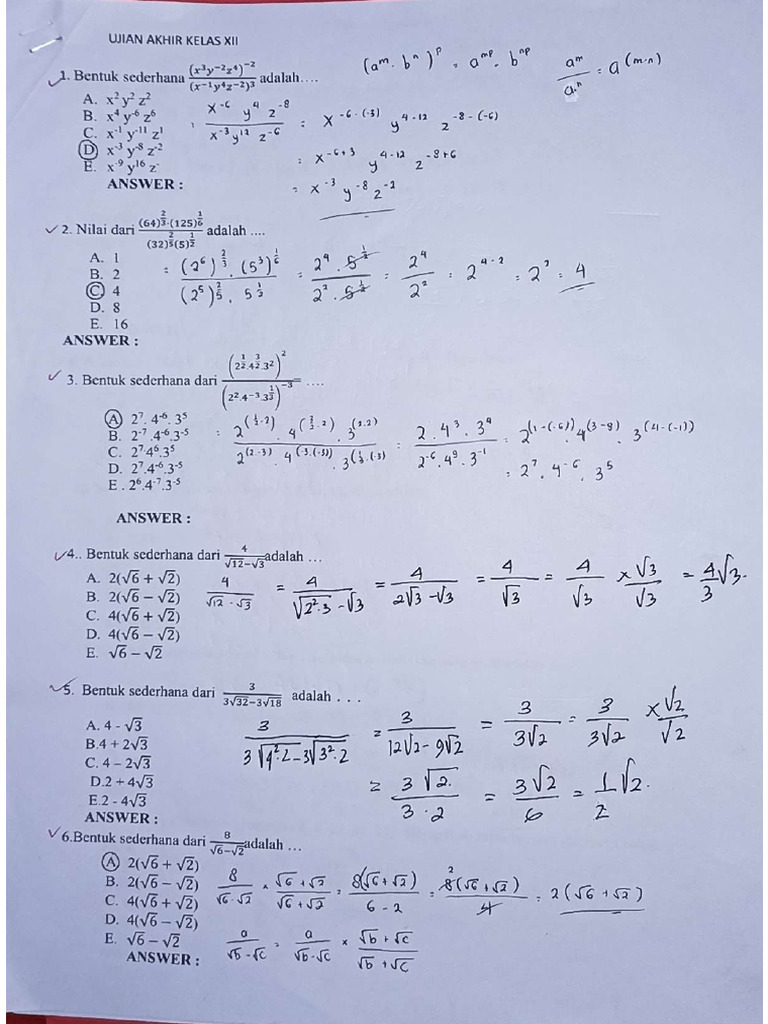 UJIAN AKHIR KELAS XII
(aᵐ · bⁿ)ᵖ = aᵐᵖ · bⁿᵖ
aᵐ/aⁿ = a^(m-n)
1. Bentuk sederhana (x³y⁻²z⁴)⁻²/(x⁻¹y⁴z⁻²)³ adalah....
A. x² y² z²
B. x⁴ y⁻⁶ z⁶
C. x⁻¹ y⁻¹¹ z¹
D. x⁻³ y⁻⁸ z⁻²
E. x⁻⁹ y¹⁶ z⁻
ANSWER :
: x⁻⁶ y⁴ z⁻⁸ / x⁻³ y¹² z⁻⁶ = x^(-6-(-3)) y^(4-12) z^(-8-(-6))
= x^(-6+3) y^(4-12) z^(-8+6)
= x⁻³ y⁻⁸ z⁻²
2. Nilai dari (64)^(2/3)·(125)^(1/6) / (32)^(2/5)(5)^(1/2) adalah ....
A. 1
B. 2
C. 4
D. 8
E. 16
ANSWER :
= (2⁶)^(2/3) · (5³)^(1/6) / (2⁵)^(2/5) · 5^(1/2) = 2⁴ · 5^(1/2) / 2² · 5^(1/2) = 2⁴/2² = 2^(4-2) = 2² = 4
3. Bentuk sederhana dari (2^(1/2).4^(3/2).3²)² / (2².4⁻³.3^(1/3))⁻³ = ....
A. 2⁷.4⁻⁶.3⁵
B. 2⁻⁷.4⁻⁶.3⁻⁵
C. 2⁷4⁶.3⁵
D. 2⁷.4⁻⁶.3⁻⁵
E . 2⁶.4⁻⁷.3⁻⁵
ANSWER :
= 2^(1/2·2) · 4^(3/2·2) · 3^(2·2) / 2^(2·-3) · 4^(-3·(-3)) · 3^(1/3·(-3)) = 2 · 4³ · 3⁴ / 2⁻⁶ · 4⁹ · 3⁻¹ = 2^(1-(-6)) · 4^(3-9) · 3^(4-(-1))
= 2⁷ · 4⁻⁶ · 3⁵
4.. Bentuk sederhana dari 4/(√12−√3) adalah ...
A. 2(√6 + √2)
B. 2(√6 − √2)
C. 4(√6 + √2)
D. 4(√6 − √2)
E. √6 − √2
4/(√12 - √3) = 4/(√2²·3 - √3) = 4/(2√3 - √3) = 4/√3 = 4/√3 × √3/√3 = 4/3 √3.
5. Bentuk sederhana dari 3/(3√32−3√18) adalah . . .
A. 4 - √3
B.4 + 2√3
C. 4 − 2√3
D.2 + 4√3
E.2 - 4√3
ANSWER :
3/(3√4²·2 - 3√3²·2) = 3/(12√2 - 9√2) = 3/(3√2) = 3/(3√2) × √2/√2
= 3√2/(3·2) = 3√2/6 = 1/2 √2.
6.Bentuk sederhana dari 8/(√6−√2) adalah ...
A. 2(√6 + √2)
B. 2(√6 − √2)
C. 4(√6 + √2)
D. 4(√6 − √2)
E. √6 − √2
ANSWER :
8/(√6 - √2) × (√6 + √2)/(√6 + √2) = 8(√6 + √2)/(6 - 2) = 8(√6 + √2)/4 = 2(√6 + √2)
a/(√b - √c) = a/(√b - √c) × (√b + √c)/(√b + √c)